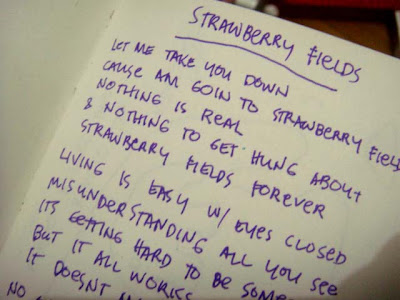 STRAWBERRY FIELDS
LET ME TAKE YOU DOWN
CAUSE AM GOIN TO STRAWBERRY FIELD
NOTHING IS REAL
& NOTHING TO GET HUNG ABOUT
STRAWBERRY FIELDS FOREVER
LIVING IS EASY W/ EYES CLOSED
MISUNDERSTANDING ALL YOU SEE
ITS GETTING HARD TO BE SOME
BUT IT ALL WORKS
IT DOESNT
NO